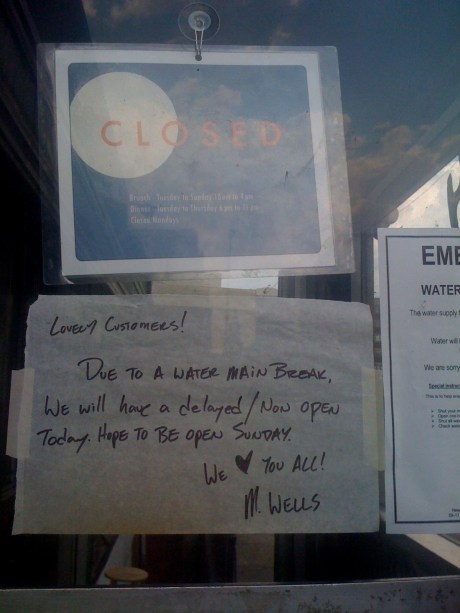 CLOSED
Brunch - Tuesday to Sunday 10am to 4pm
Dinner - Tuesday to Thursday 6 pm to
Closed Mondays
LOVELY CUSTOMERS!
DUE TO A WATER MAIN BREAK,
We will have a delayed/NON OPEN
Today. HOPE TO BE OPEN SUNDAY.
WE ♥ YOU ALL!
M. WELLS
EME
WATER
The water supply
Water will
We are sorry